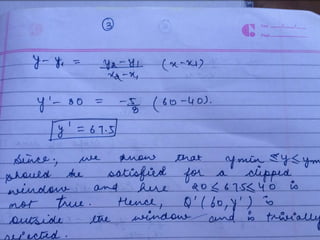 3
y-y₁ = y₂-y₁/x₂-x₁ (x-x₁)
y'-80 = -5/8 (60-40).
y' = 67.5
Since, we know that ymin ≤y≤ym
should be satisfied for a clipped
window and here 20≤67.5≤40 is
not true. Hence, Q'(60,y') is
outside the window and is trivially
rejected.